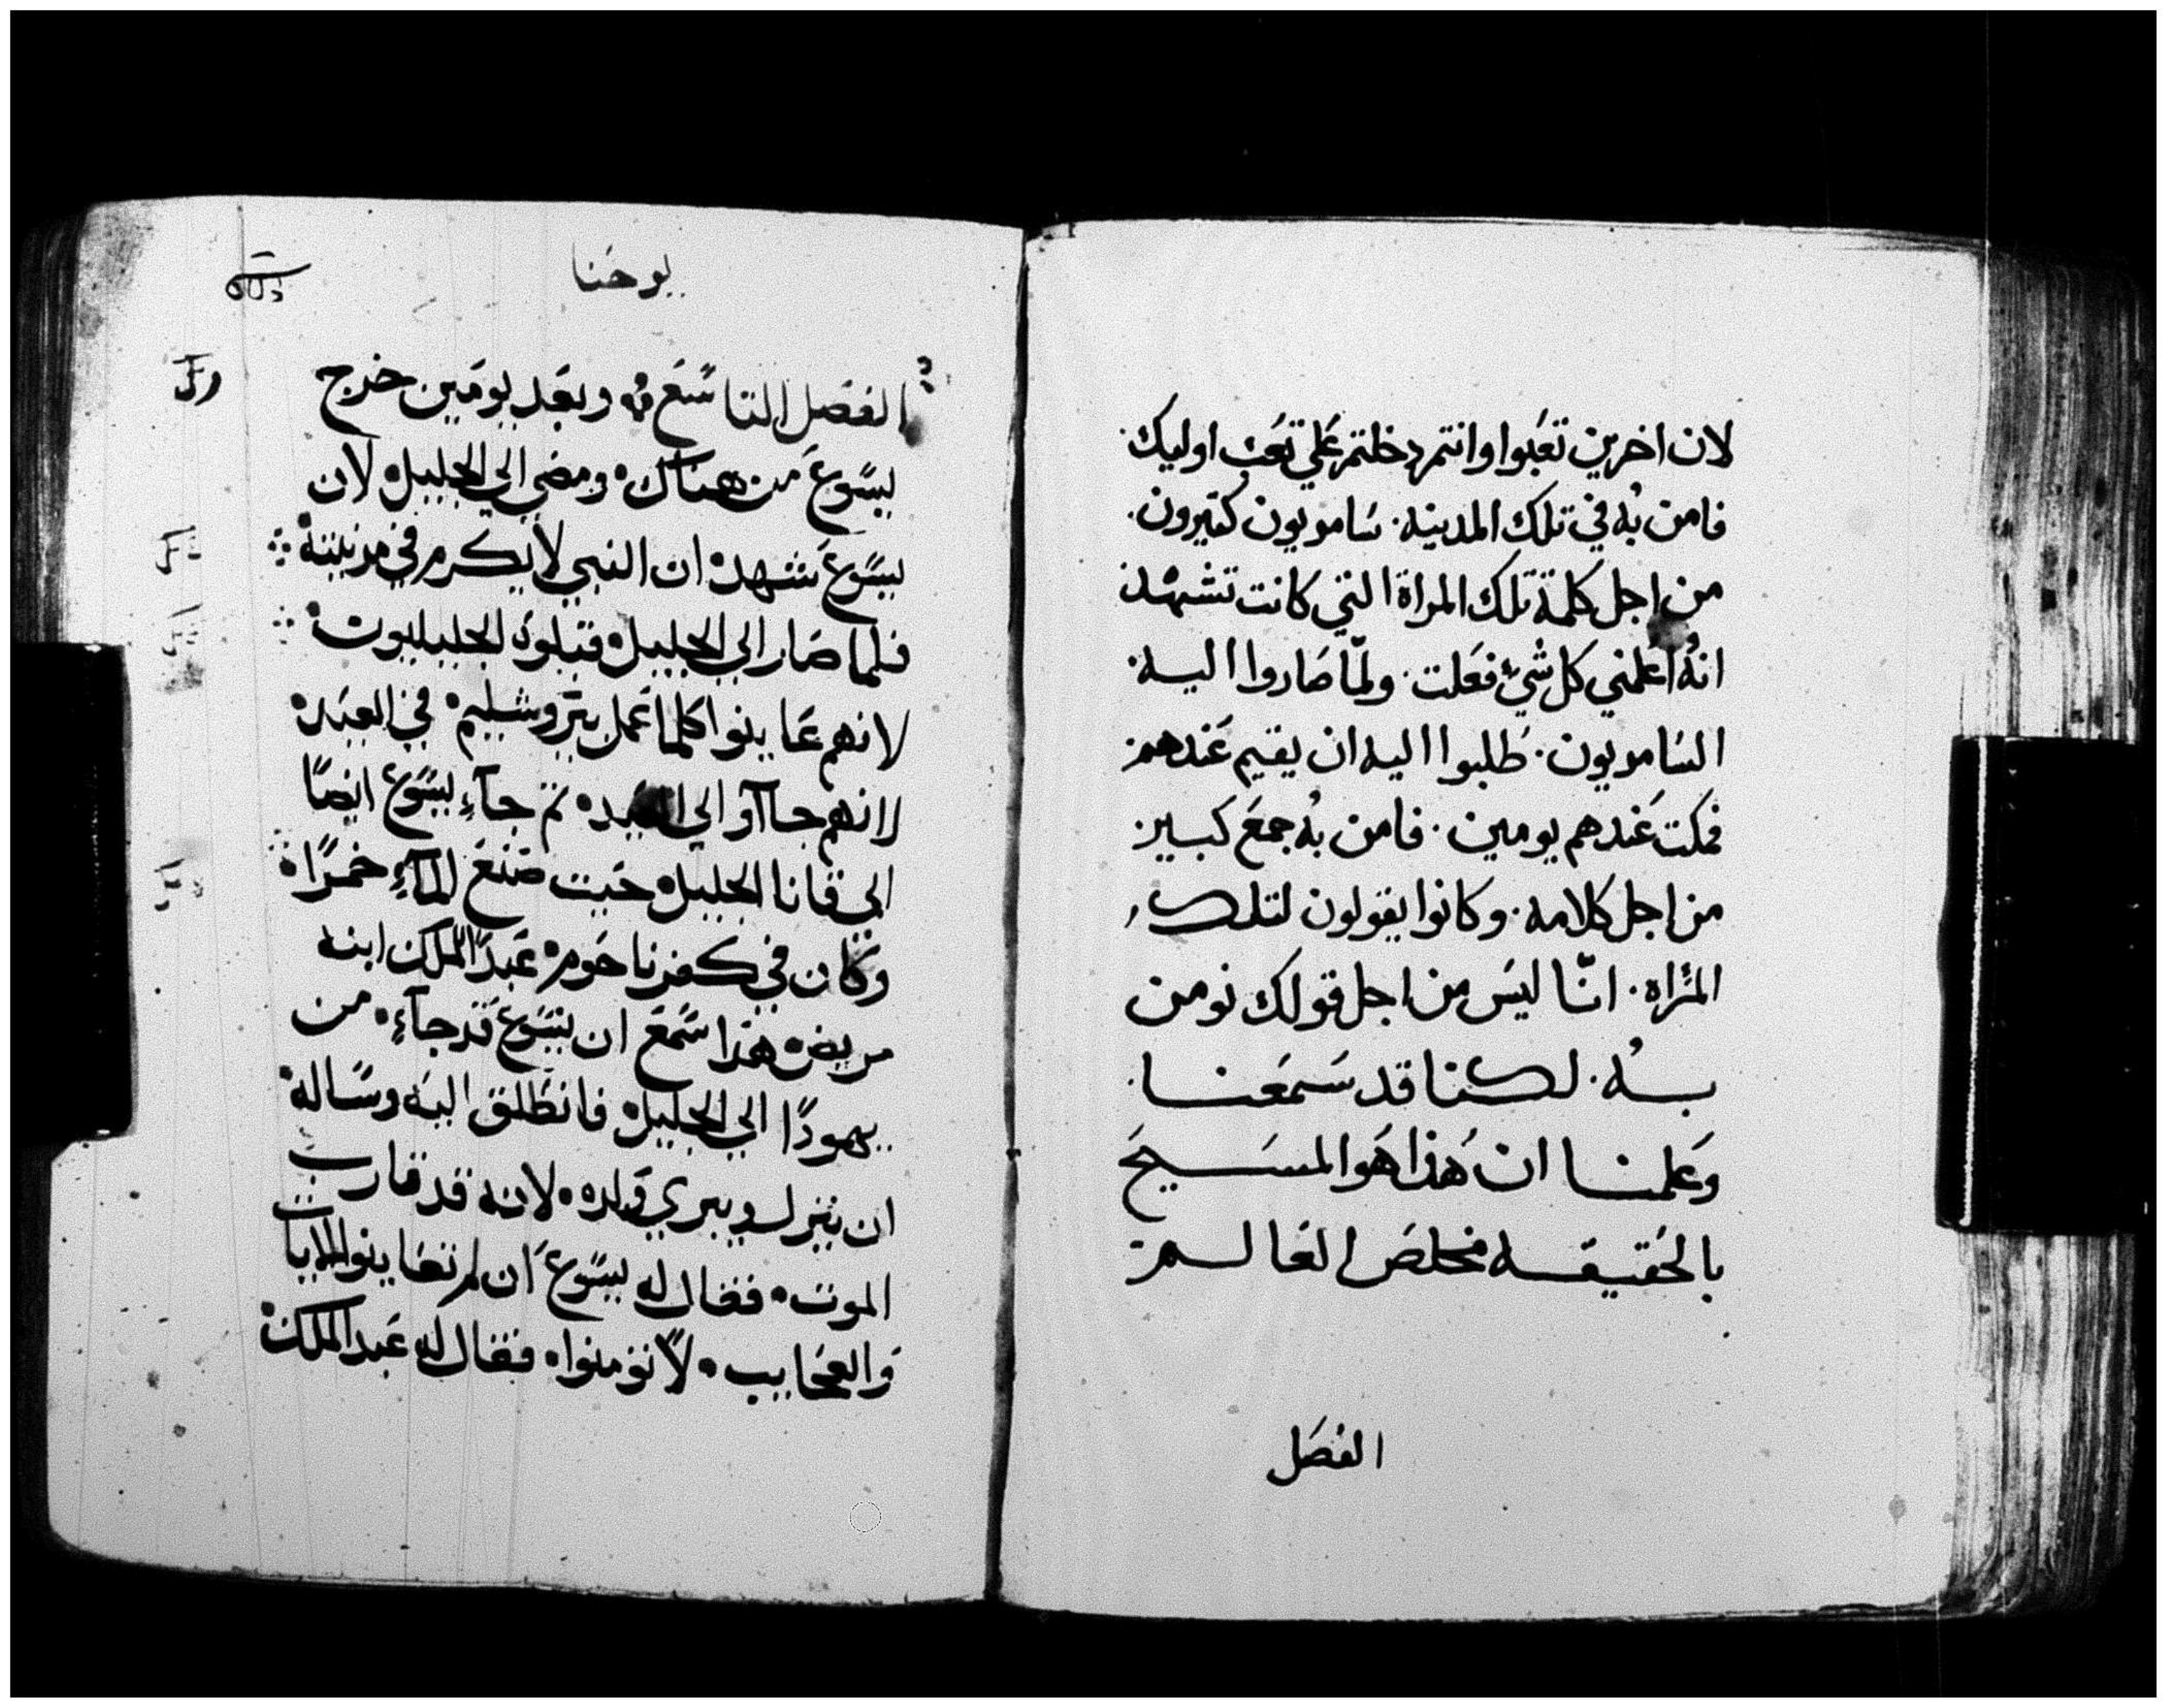 لان اخرين تعبوا وانتم دخلتم علي تعب اوليك.
فامن به في تلك المدينه. سامريون كتيرون.
من اجل كلمة تلك المراة التي كانت تشهد
انه اعلمني كل شيء فعلت. ولما صاروا اليه.
السامريون. طلبوا اليه ان يقيم عندهم.
فمكت عندهم يومين. فامن به جمع كبير
من اجل كلامه. وكانوا يقولون لتلك
المراه. انّا ليس من اجل قولك نومن
به. لكننا قد سمعنا.
وعلمنا ان هذا هو المسيح
بالحقيقه مخلص العالم
الفصل
يوحنا
الفصل التاسع وبعد يومين خرج
يسوع من هناك ومضي الي الجليل لان
يسوع شهد ان النبي لا يكرم في مدينته
فلما صار الي الجليل قبلوه الجليليون
لانهم عاينوا كلما عمل بيروشليم في العيد
لانهم جاآوا الي العيد تم جآء يسوع ايضًا
الي قانا الجليل حيت صنع المآء خمرًا
وكان في كفرناحوم عبد الملك ابنه
مريض هذا سمع ان يسوع قد جآء من
يهودًا الي الجليل فانطلق اليه وساله
ان ينزل ويبري ولده لانه قد قارب
الموت فقال له يسوع ان لم تعاينوا الايات
والعجايب لا تومنوا فقال له عبد الملك